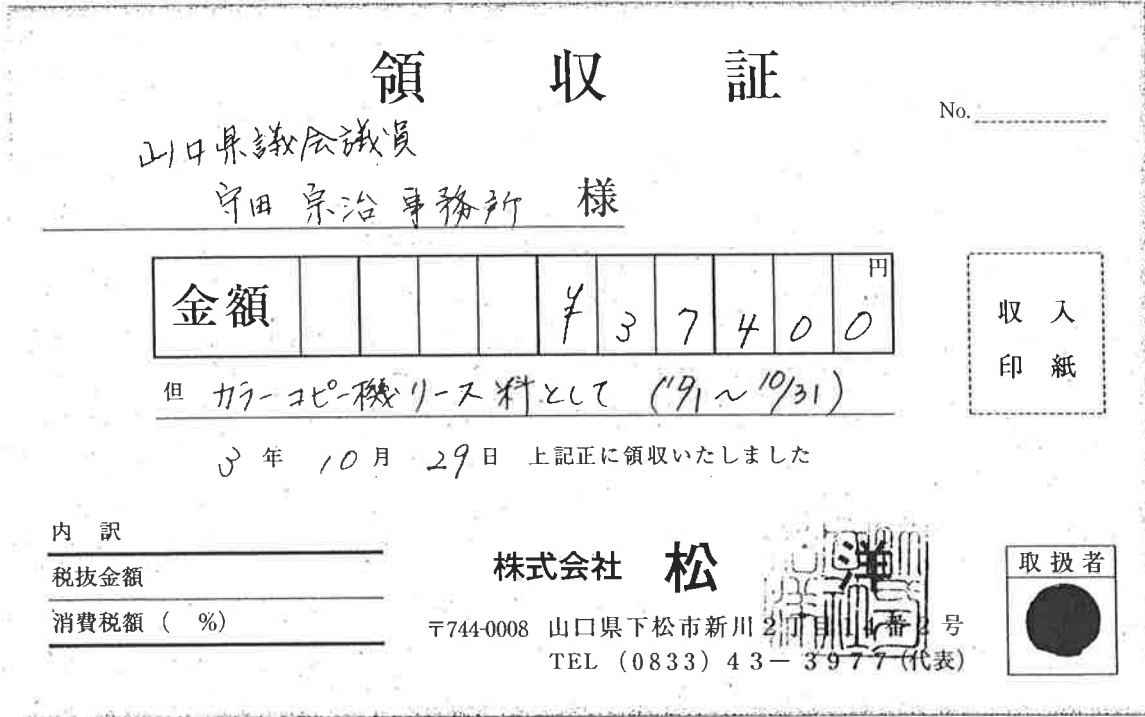 領収証
No.
山口県議会議員
守田宗治事務所 様
金額 ¥37400円
但 カラーコピー機リース料として (10/1～10/31)
収入
印紙
3年10月29日 上記正に領収いたしました
内訳
税抜金額
消費税額( %)
株式会社 松洋
〒744-0008 山口県下松市新川2丁目14番2号
TEL (0833) 43-3977 (代表)
取扱者